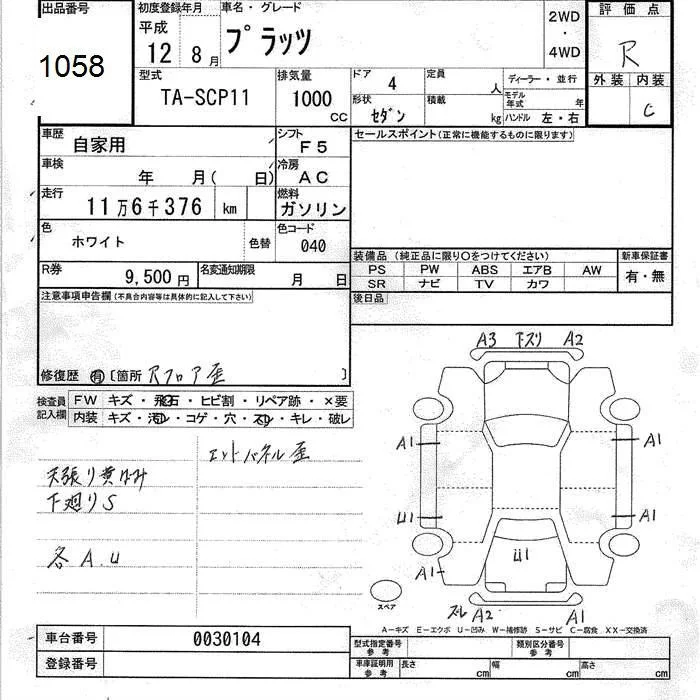 出品番号
1058
初度登録年月
平成 12年 8月
車名・グレード
プラッツ
2WD
・
4WD
評価点
R
外装 内装
C
型式
TA-SCP11
排気量
1000
cc
ドア 4
形状 セダン
定員 人
積載 kg
ディーラー・並行
モデル年式 年
ハンドル 左・右
車歴
自家用
シフト
F5
セールスポイント(正常に機能するものに限ります)
車検
年 月( 日)
冷房
AC
走行
11万6千376 km
燃料
ガソリン
色
ホワイト
色替
色コード
040
装備品 (純正品に限り○をつけてください)
新車保証書
PS PW ABS エアB AW
有・無
SR ナビ TV カワ
後日品
R券
9,500円
名変通知期限
月 日
注意事項申告欄(不具合内容等は具体的に記入して下さい)
修復歴 有 [箇所 Rフロア歪 ]
検査員記入欄
FW キズ・飛石・ヒビ割・リペア跡・×要
内装 キズ・汚レ・コゲ・穴・スレ・キレ・破レ
エンドパネル歪
天張り黄ばみ
下廻りS
各A.U
A3 下スリ A2
A1 A1
U1 A1
U1
A1
スレ A2 A1
スペア
A-キズ E-エクボ U-凹み W-補修跡 S-サビ C-腐食 XX-交換済
車台番号 0030104
登録番号
型式指定番号 参考
類別区分番号 参考
車庫証明用 参考
長さ cm
幅 cm
高さ cm